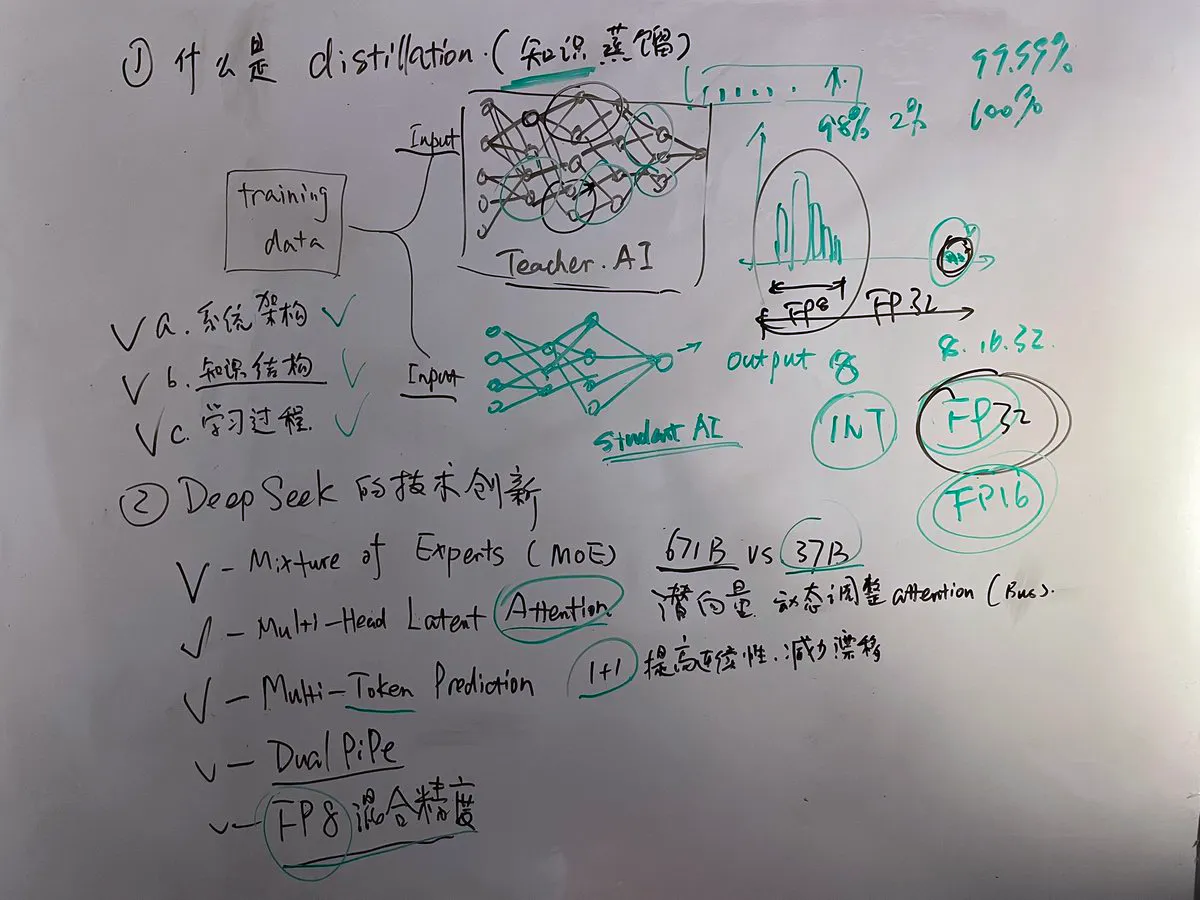 ① 什么是 distillation.(知识蒸馏)
99.99%
98% 2% 100%
Input
training
data
Teacher.AI
FP8 FP32
a. 系统架构
b. 知识结构
c. 学习过程.
Input
Output 8
8.16.32.
Student AI
INT
FP32
FP16
② DeepSeek 的技术创新
- Mixture of Experts (MoE) 671B vs 37B
- Multi-Head Latent Attention. 潜向量 动态调整 attention (Bus).
- Multi-Token Prediction 1+1 提高连续性.减少漂移
- Dual PiPe
- FP8 混合精度